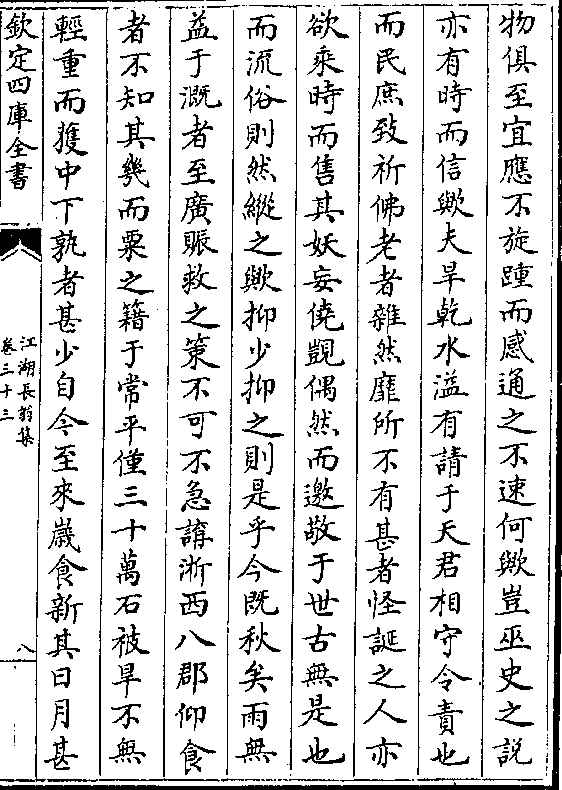 物俱至宜應不旋踵而感通之不速何歟豈巫史之說
亦有時而信歟夫旱乾水溢有請于天君相守令責也
而民庶致祈佛老者雜然靡所不有甚者怪誕之人亦
欲乘時而售其妖妄僥覬偶然而邀敬于世古無是也
而流俗則然縱之歟抑少抑之則是乎今既秋矣雨無
益于溉者至廣賑救之策不可不急講淅西八郡仰食
者不知其幾而粟之籍于常平僅三十萬石被旱不無
輕重而獲中下孰者甚少自今至來歲食新其日月甚
欽定四庫全書
江湖長翁集
卷三十三
八